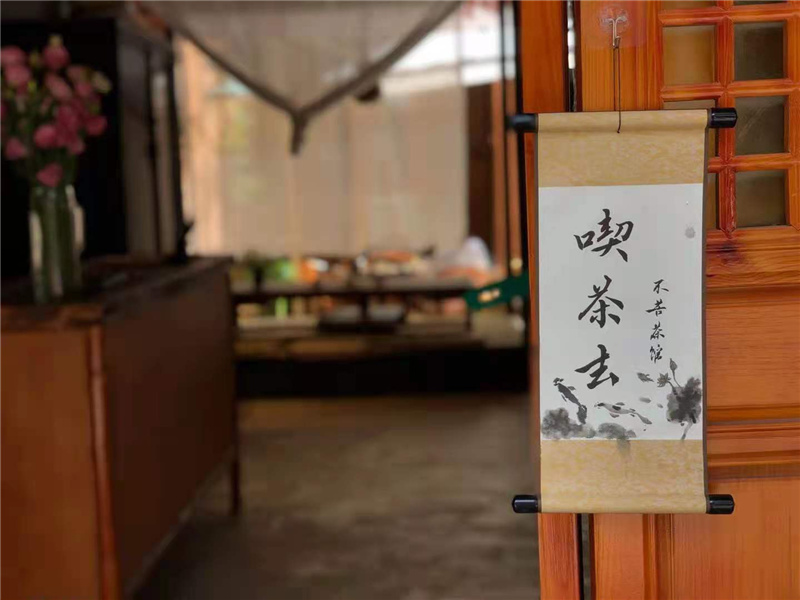 喫茶去
不苦茶馆